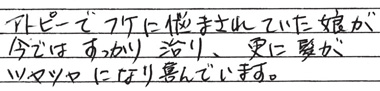 アトピーでフケに悩まされていた娘が
今ではすっかり治り、更に髪が
ツヤツヤになり喜んでいます。